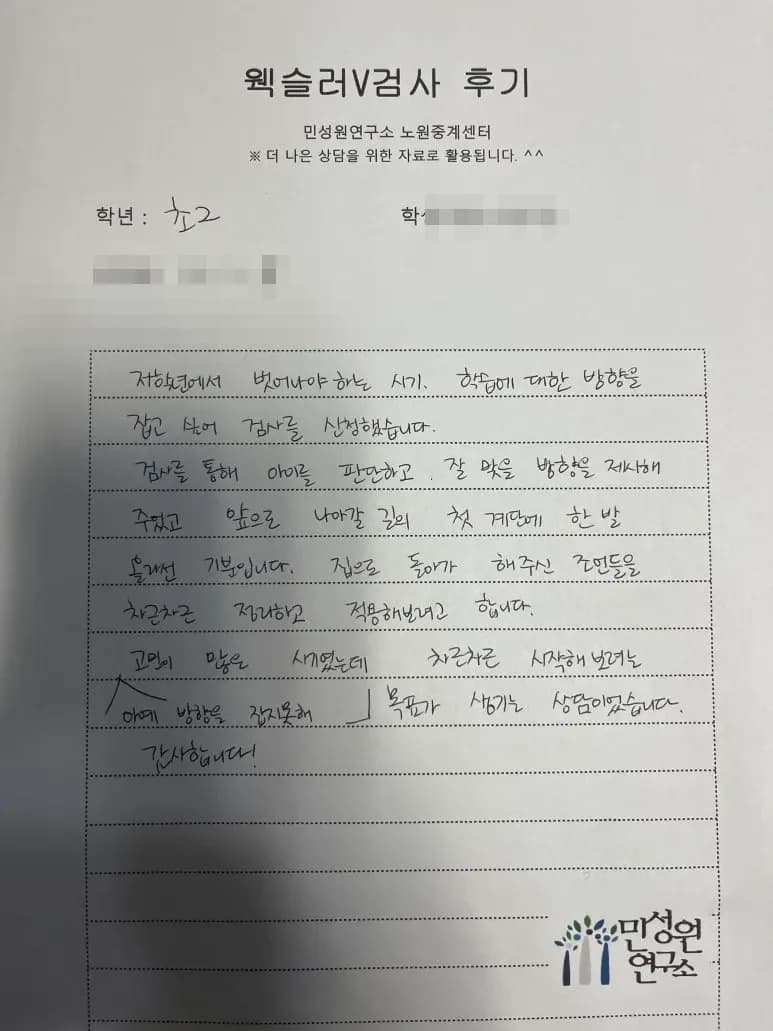 웩슬러V검사 후기
민성원연구소 노원중계센터
※ 더 나은 상담을 위한 자료로 활용됩니다. ^^
학년 : 초2
저학년에서 벗어나야 하는 시기. 학습에 대한 방향을
잡고 싶어 검사를 신청했습니다.
검사를 통해 아이를 판단하고, 잘 맞을 방향을 제시해
주셨고 앞으로 나아갈 길의 첫 계단에 한 발
올라선 기분입니다. 집으로 돌아가 해주신 조언들을
차근차근 정리하고 적용해보려고 합니다.
고민이 많은 시기였는데 차근차근 시작해 보려는
아예 방향을 잡지못해 목표가 생기는 상담이었습니다.
감사합니다!
민성원
연구소